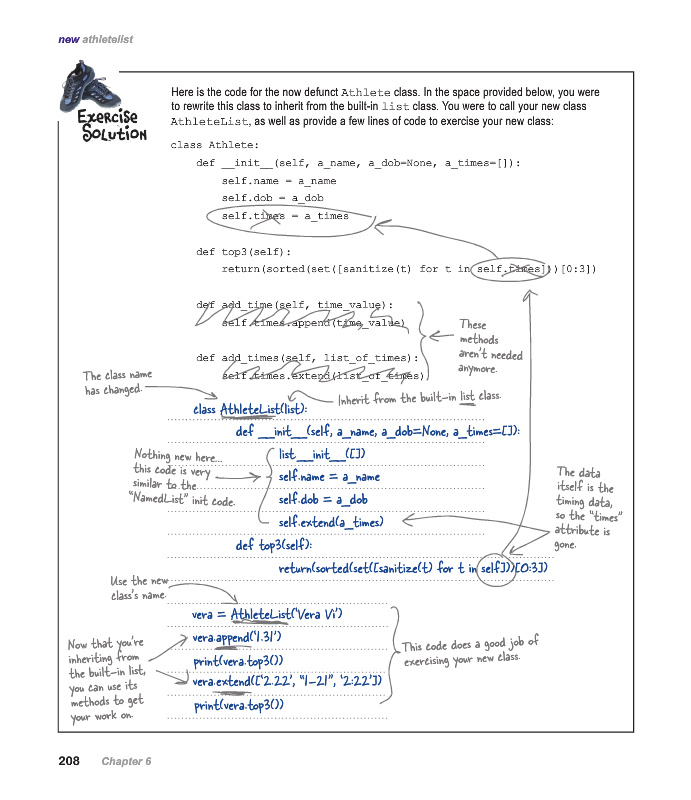 new athletelist
Exercise
Solution
Here is the code for the now defunct Athlete class. In the space provided below, you were
to rewrite this class to inherit from the built-in list class. You were to call your new class
AthleteList, as well as provide a few lines of code to exercise your new class:
class Athlete:
def __init__(self, a_name, a_dob=None, a_times=[]):
self.name = a_name
self.dob = a_dob
self.times = a_times
def top3(self):
return(sorted(set([sanitize(t) for t in self.times]))[0:3])
def add_time(self, time_value):
self.times.append(time_value)
def add_times(self, list_of_times):
self.times.extend(list_of_times)
These
methods
aren't needed
anymore.
The class name
has changed.
Inherit from the built-in list class.
class AthleteList(list):
def __init__(self, a_name, a_dob=None, a_times=[]):
list__init__([])
self.name = a_name
self.dob = a_dob
self.extend(a_times)
Nothing new here...
this code is very
similar to the
"NamedList" init code.
The data
itself is the
timing data,
so the "times"
attribute is
gone.
def top3(self):
return(sorted(set([sanitize(t) for t in self]))[0:3])
Use the new
class's name.
vera = AthleteList('Vera Vi')
vera.append('1.31')
print(vera.top3())
vera.extend(['2.22', "1-21", '2:22'])
print(vera.top3())
Now that you're
inheriting from
the built-in list,
you can use its
methods to get
your work on.
This code does a good job of
exercising your new class.
208 Chapter 6